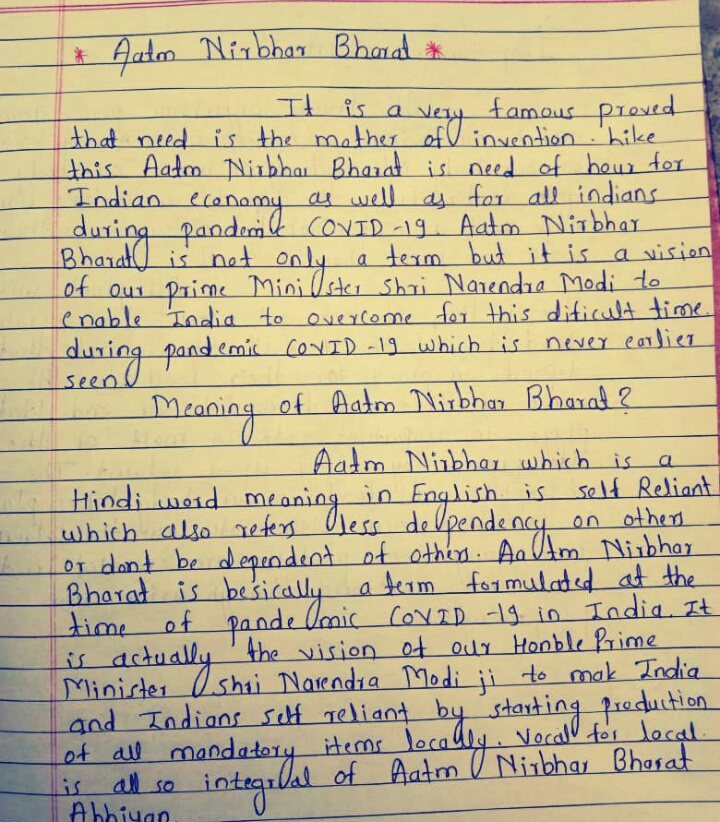 * Aatm Nirbhar Bharat *
It is a very famous proved
that need is the mother of invention. Like
this Aatm Nirbhar Bharat is need of hour for
Indian economy as well as for all indians
during pandemic COVID-19. Aatm Nirbhar
Bharat is not only a term but it is a vision
of our prime Minister Shri Narendra Modi to
enable India to overcome for this dificult time.
during pandemic COVID-19 which is never earlier
seen
Meaning of Aatm Nirbhar Bharat?
Aatm Nirbhar which is a
Hindi word meaning in English is self Reliant
which also refers less dependency on others
or dont be dependent of others. Aatm Nirbhar
Bharat is besically a term formulated at the
time of pandemic COVID-19 in India. It
is actually the vision of our Honble Prime
Minister Shri Narendra Modi ji to mak India
and Indians self reliant by starting production
of all mandatory items locally. Vocal for local.
is all so integral of Aatm Nirbhar Bharat
Abhiyan.